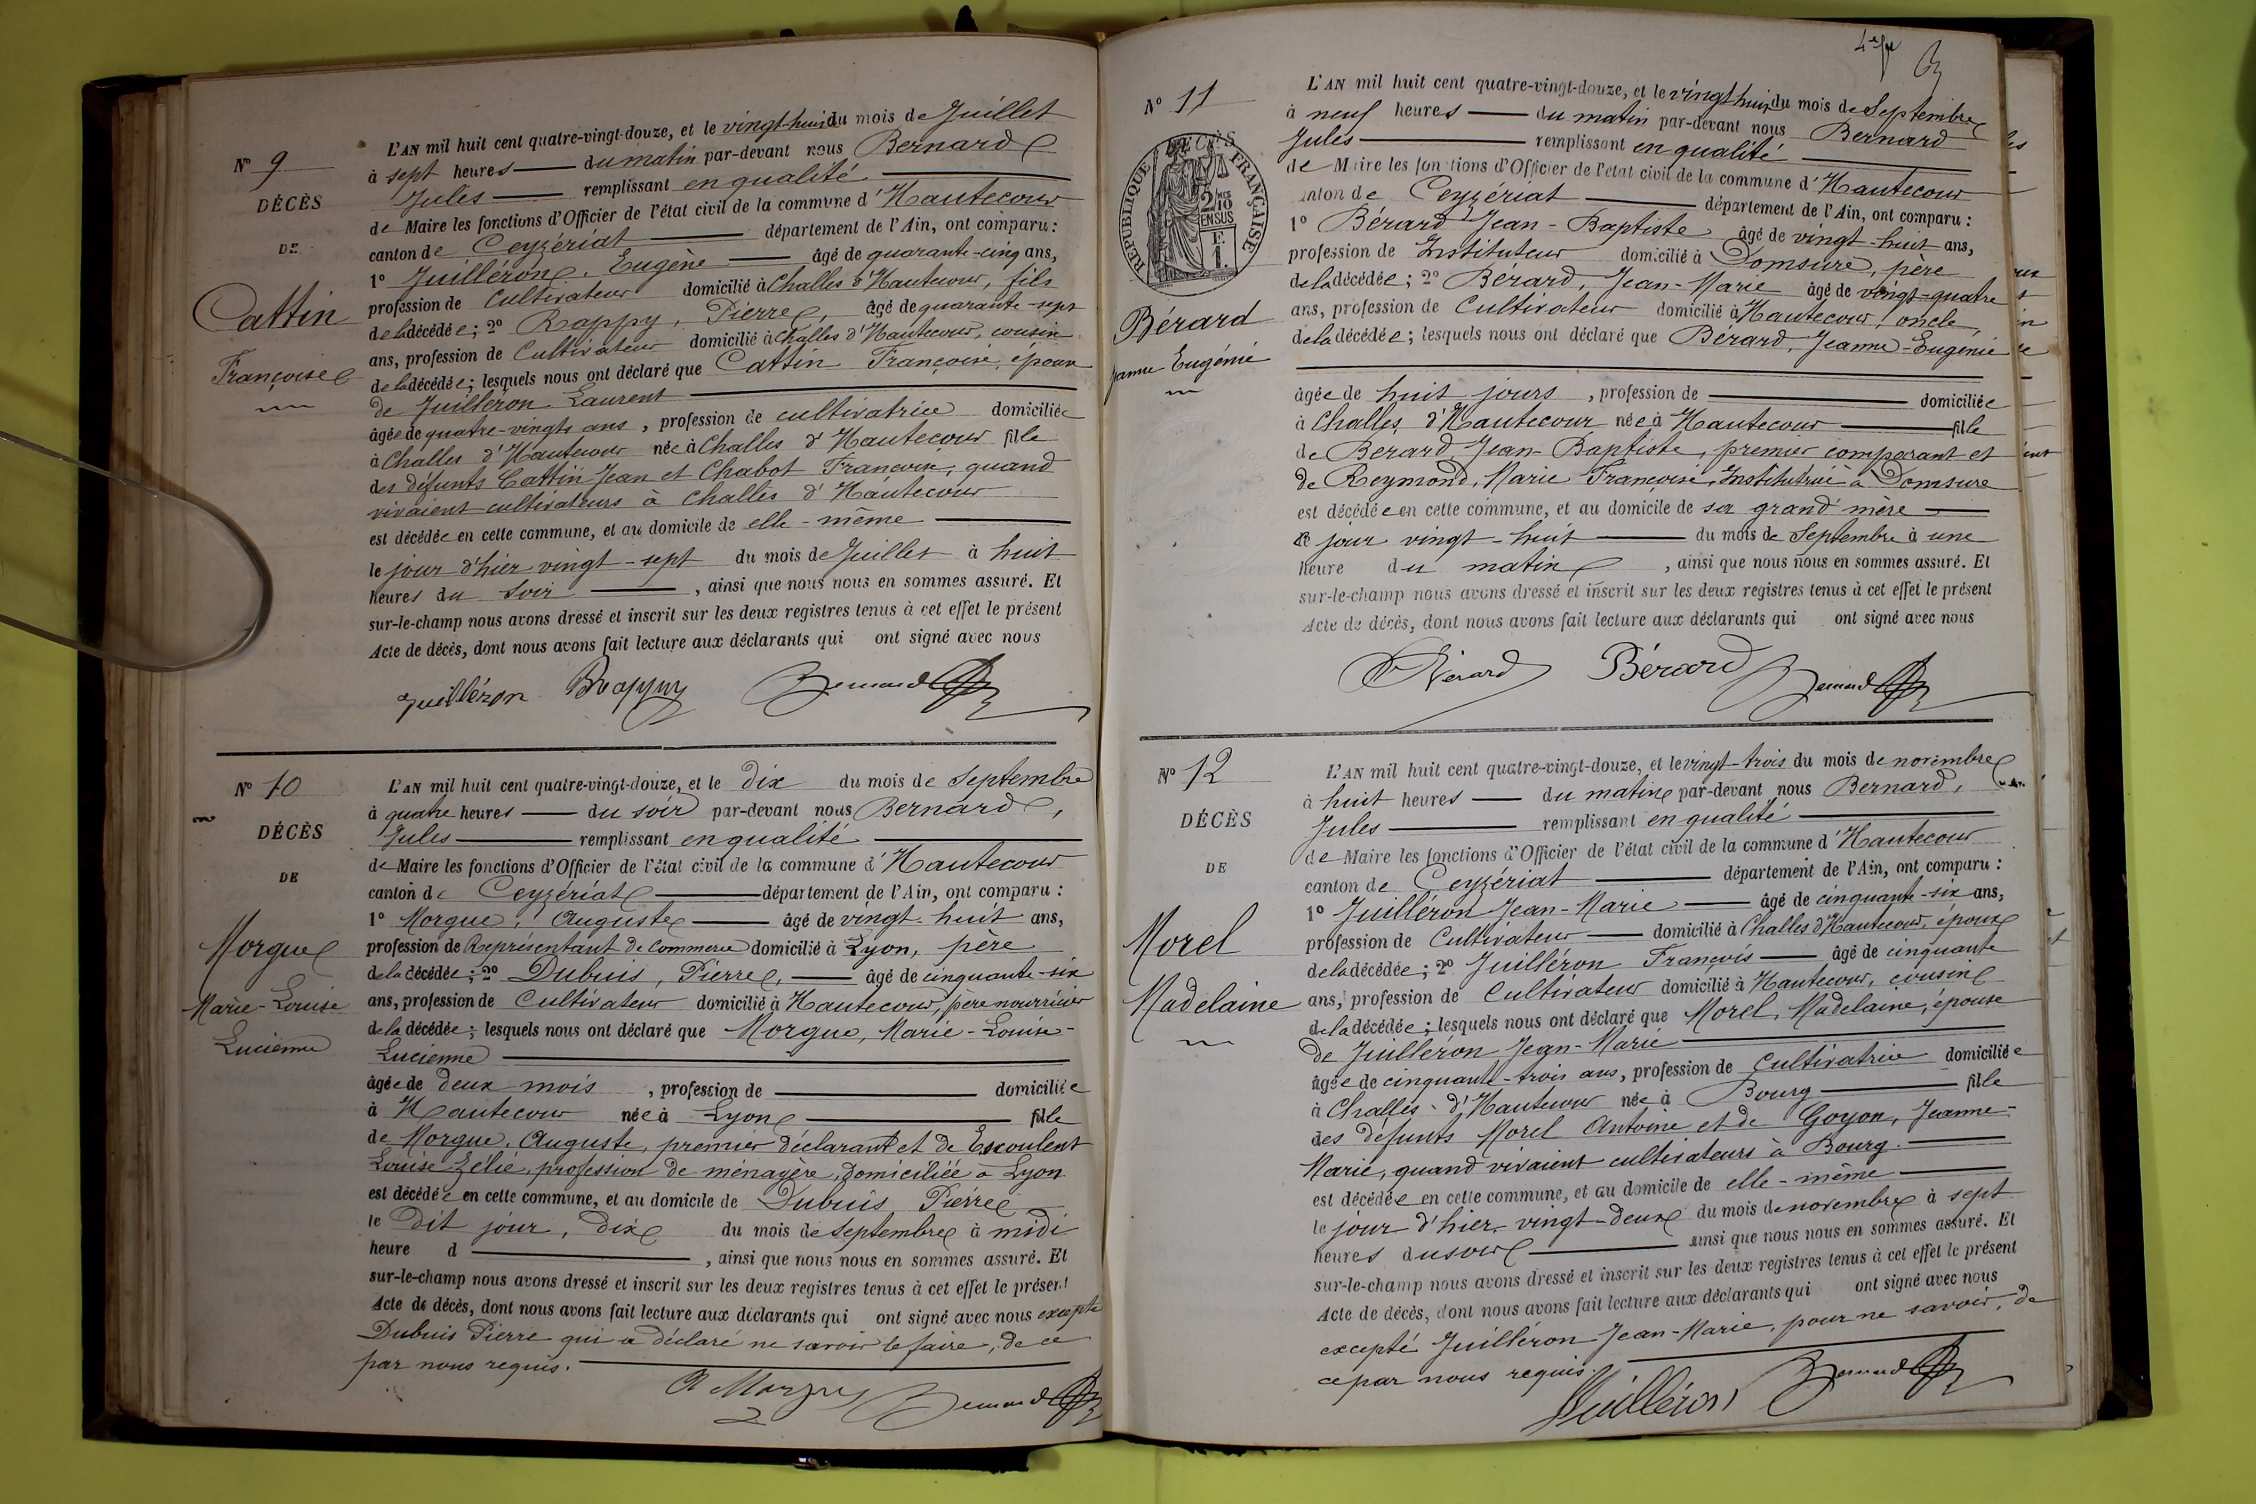 N° 9
DÉCÈS
DE
Cattin
Françoise
L'AN mil huit cent quatre-vingt-douze, et le vingt-huit du mois de Juillet
à sept heures du matin par-devant nous Bernard
Jules remplissant en qualité
de Maire les fonctions d'Officier de l'état civil de la commune d'Hautecour
canton de Ceyzériat département de l'Ain, ont comparu:
1° Juilléron, Eugène âgé de quarante-cinq ans,
profession de Cultivateur domicilié à Challes d'Hautecour, fils
de la décédée; 2° Rappy, Pierre, âgé de quarante-sept
ans, profession de Cultivateur domicilié à Challes d'Hautecour, cousin
de la décédée; lesquels nous ont déclaré que Cattin Françoise, épouse
de Juilléron Laurent
âgée de quatre-vingts ans, profession de cultivatrice domiciliée
à Challes d'Hautecour née à Challes d'Hautecour fille
des défunts Cattin Jean et Chabot Françoise, quand
vivaient cultivateurs à Challes d'Hautecour
est décédée en cette commune, et au domicile de elle-même
le jour d'hier vingt-sept du mois de Juillet à huit
heures du soir, ainsi que nous nous en sommes assuré. Et
sur-le-champ nous avons dressé et inscrit sur les deux registres tenus à cet effet le présent
Acte de décès, dont nous avons fait lecture aux déclarants qui ont signé avec nous
Juilléron Rappy Bernard
N° 10
DÉCÈS
DE
Morgue
Marie-Louise
Lucienne
L'AN mil huit cent quatre-vingt-douze, et le dix du mois de Septembre
à quatre heures du soir par-devant nous Bernard,
Jules remplissant en qualité
de Maire les fonctions d'Officier de l'état civil de la commune d'Hautecour
canton de Ceyzériat département de l'Ain, ont comparu:
1° Morgue, Auguste âgé de vingt-huit ans,
profession de Représentant de Commerce domicilié à Lyon, père
de la décédée; 2° Dubuis, Pierre, âgé de cinquante-six
ans, profession de Cultivateur domicilié à Hautecour, père nourricier
de la décédée; lesquels nous ont déclaré que Morgue, Marie-Louise-
Lucienne
âgée de deux mois, profession de domiciliée
à Hautecour née à Lyon fille
de Morgue, Auguste, premier déclarant et de Escoulent
Louise Zélie, profession de ménagère, domiciliée à Lyon
est décédée en cette commune, et au domicile de Dubuis Pierre
le dit jour, dix du mois de Septembre à midi
heure d, ainsi que nous nous en sommes assuré. Et
sur-le-champ nous avons dressé et inscrit sur les deux registres tenus à cet effet le présent
Acte de décès, dont nous avons fait lecture aux déclarants qui ont signé avec nous excepté
Dubuis Pierre qui a déclaré ne savoir le faire, de ce
par nous requis.
A Morgue Bernard
N° 11
DÉCÈS
RÉPUBLIQUE FRANÇAISE
2/10 EN SUS
Bérard
Jeanne Eugénie
L'AN mil huit cent quatre-vingt-douze, et le vingt-huit du mois de Septembre
à neuf heures du matin par-devant nous Bernard
Jules remplissant en qualité
de Maire les fonctions d'Officier de l'état civil de la commune d'Hautecour
canton de Ceyzériat département de l'Ain, ont comparu:
1° Bérard Jean-Baptiste âgé de vingt-huit ans,
profession de Instituteur domicilié à Domsure, père
de la décédée; 2° Bérard, Jean-Marie âgé de vingt-quatre
ans, profession de Cultivateur domicilié à Hautecour, oncle,
de la décédée; lesquels nous ont déclaré que Bérard, Jeanne-Eugénie
âgée de huit jours, profession de domiciliée
à Challes d'Hautecour née à Hautecour fille
de Berard Jean-Baptiste, premier comparant et
de Reymond, Marie Françoise, Institutrice à Domsure
est décédée en cette commune, et au domicile de sa grand'mère
ce jour vingt-huit du mois de Septembre à une
heure du matin, ainsi que nous nous en sommes assuré. Et
sur-le-champ nous avons dressé et inscrit sur les deux registres tenus à cet effet le présent
Acte de décès, dont nous avons fait lecture aux déclarants qui ont signé avec nous
Bérard Bérard Bernard
N° 12
DÉCÈS
DE
Morel
Madelaine
L'AN mil huit cent quatre-vingt-douze, et le vingt-trois du mois de novembre
à huit heures du matin par-devant nous Bernard,
Jules remplissant en qualité
de Maire les fonctions d'Officier de l'état civil de la commune d'Hautecour
canton de Ceyzériat département de l'Ain, ont comparu:
1° Juilléron Jean-Marie âgé de cinquante-six ans,
profession de Cultivateur domicilié à Challes d'Hautecour, époux
de la décédée; 2° Juilléron François âgé de cinquante
ans, profession de Cultivateur domicilié à Hautecour, cousin
de la décédée; lesquels nous ont déclaré que Morel, Madelaine, épouse
de Juilléron Jean-Marie
âgée de cinquante-trois ans, profession de Cultivatrice domiciliée
à Challes-d'Hautecour née à Bourg fille
des défunts Morel Antoine et de Goyon, Jeanne-
Marie, quand vivaient cultivateurs à Bourg.
est décédée en cette commune, et au domicile de elle-même
le jour d'hier vingt-deux du mois de novembre à sept
heures du soir ainsi que nous nous en sommes assuré. Et
sur-le-champ nous avons dressé et inscrit sur les deux registres tenus à cet effet le présent
Acte de décès, dont nous avons fait lecture aux déclarants qui ont signé avec nous
excepté Juilléron Jean-Marie, pour ne savoir, de
ce par nous requis.
Juilléron Bernard